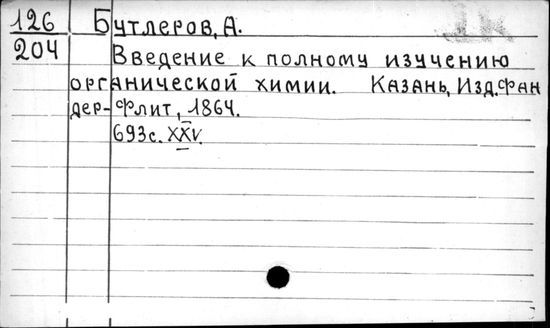 126 Бутлеров, А.
204 Введение к полному изучению
органической химии. Казань, Изд. Фан
дер-Флит, 1864.
693с. XXV.